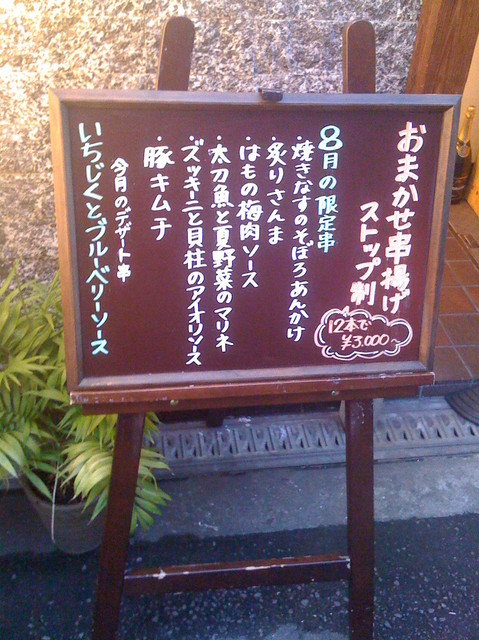 おまかせ串揚げ
ストップ制
12本で
¥3,000
8月の限定串
・焼きなすのそぼろあんかけ
・炙りさんま
・はもの梅肉ソース
・太刀魚と夏野菜のマリネ
・ズッキーニと貝柱のアイオリソース
・豚キムチ
今月のデザート串
いちじくとブルーベリーソース